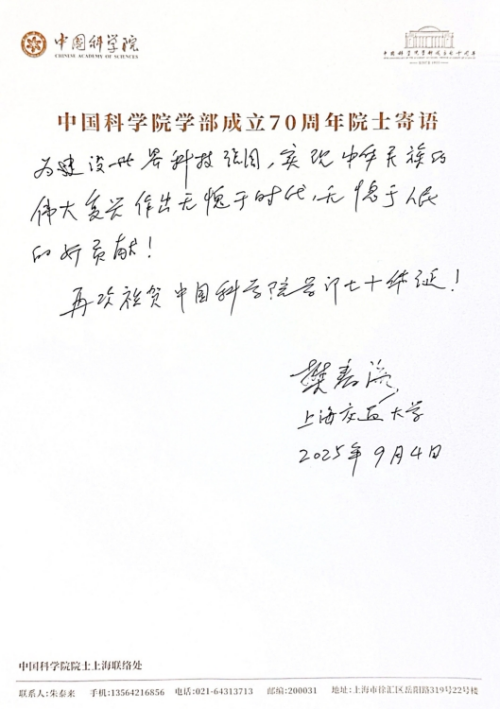 中国科学院
CHINESE ACADEMY OF SCIENCES
中国科学院学部成立70周年院士寄语
为建设世界科技强国，实现中华民族的
伟大复兴作出无愧于时代，无愧于人民
的好贡献！
再次祝贺中国科学院学部七十华诞！
樊春海
上海交通大学
2025年9月4日
中国科学院院士上海联络处
联系人:朱泰来 手机:13564216856 电话:021-64313713 邮编:200031 地址:上海市徐汇区岳阳路319号22号楼